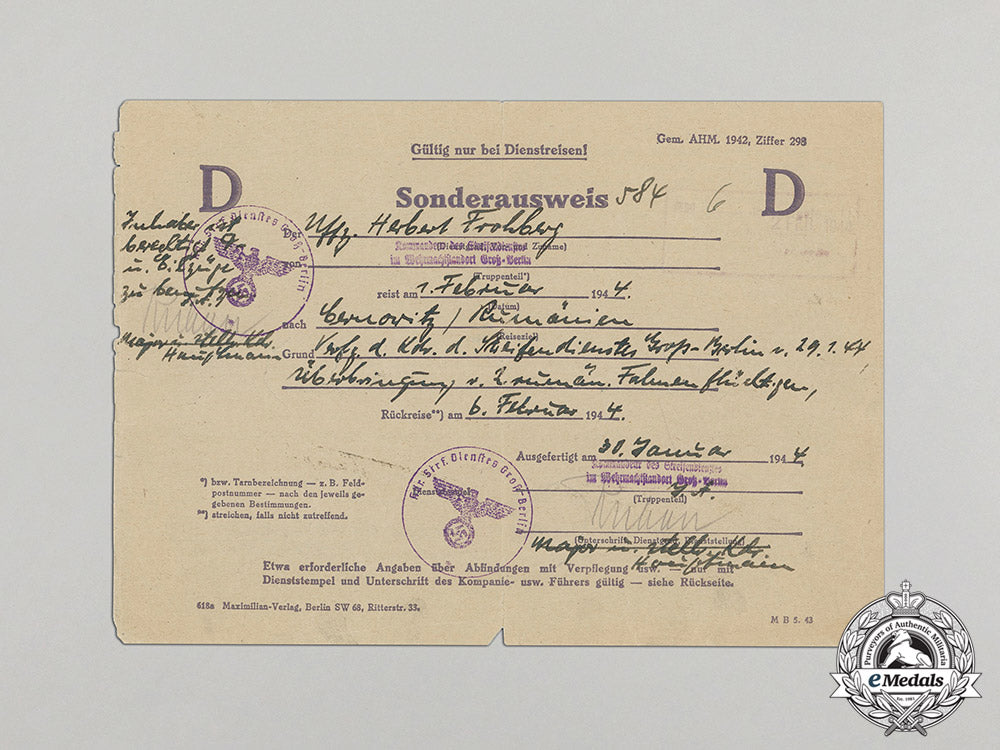 Gem. AHM. 1942, Ziffer 298
Gültig nur bei Dienstreisen!
D Sonderausweis 584 6 D
Der Uffz. Herbert Frohberg
(Dienstgrad, Vor- und Zuname)
Kommandeur des Streifendienstes
im Wehrmachtstandort Groß-Berlin
von
(Truppenteil*)
reist am 1. Februar 1944.
(Datum)
nach Cernowitz / Rumänien
(Reiseziel)
Grund Verfg. d. Kdr. d. Streifendienstes Groß-Berlin v. 29.1.44
Überbringung v. 2 rumän. Fahnenflüchtigen,
Rückreise**) am 6. Februar 1944.
Inhaber ist
berechtigt
u. Eilzüge
zu benutzen
Major u. stellv. Kdr.
Hauptmann
Kdr. Streif. Dienstes Groß-Berlin
Ausgefertigt am 30. Januar 1944
Kommandeur des Streifendienstes
im Wehrmachtstandort Groß-Berlin
(Truppenteil)
Kdr. Streif. Dienstes Groß-Berlin
(Unterschrift, Dienstgrad, Dienststellung)
Major u. stellv. Kdr.
Hauptmann
*) bzw. Tarnbezeichnung — z. B. Feld-
postnummer — nach den jeweils ge-
gebenen Bestimmungen.
**) streichen, falls nicht zutreffend.
Etwa erforderliche Angaben über Abfindungen mit Verpflegung usw. — nur mit
Dienststempel und Unterschrift des Kompanie- usw. Führers gültig — siehe Rückseite.
618a Maximilian-Verlag, Berlin SW 68, Ritterstr. 33.
M B 5. 43
Purveyors of Authentic Militaria
eMedals
Est. 1985